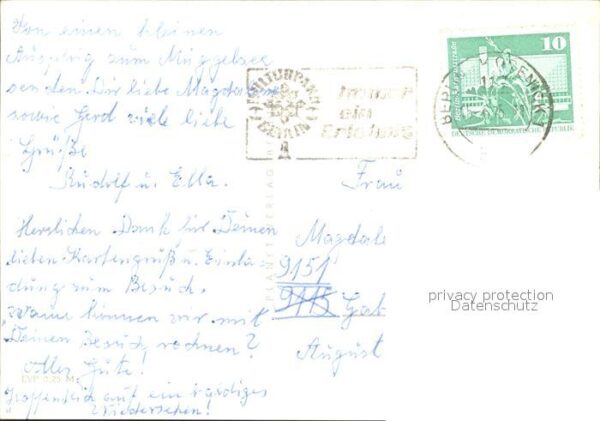 Von einem kleinen
Ausflug zum Müggelsee
senden Dir liebe Magdalena
sowie Gerd viele liebe
Grüße
Rudolf u. Ella.
Herzlichen Dank für Deinen
lieben Kartengruß u. Einla-
dung zum Besuch.
Wann können wir mit
Deinem Besuch rechnen?
Alles Gute!
EVP 0,25 M
Hoffentlich auf ein
Wiedersehen!
KULTURPARK
BERLIN
Immer
ein
Erlebnis
BERLIN KÖPENICK
10
DEUTSCHE DEMOKRATISCHE REPUBLIK
PLANET-VERLAG
Frau
Magdale
9151
9115
August
privacy protection
Datenschutz